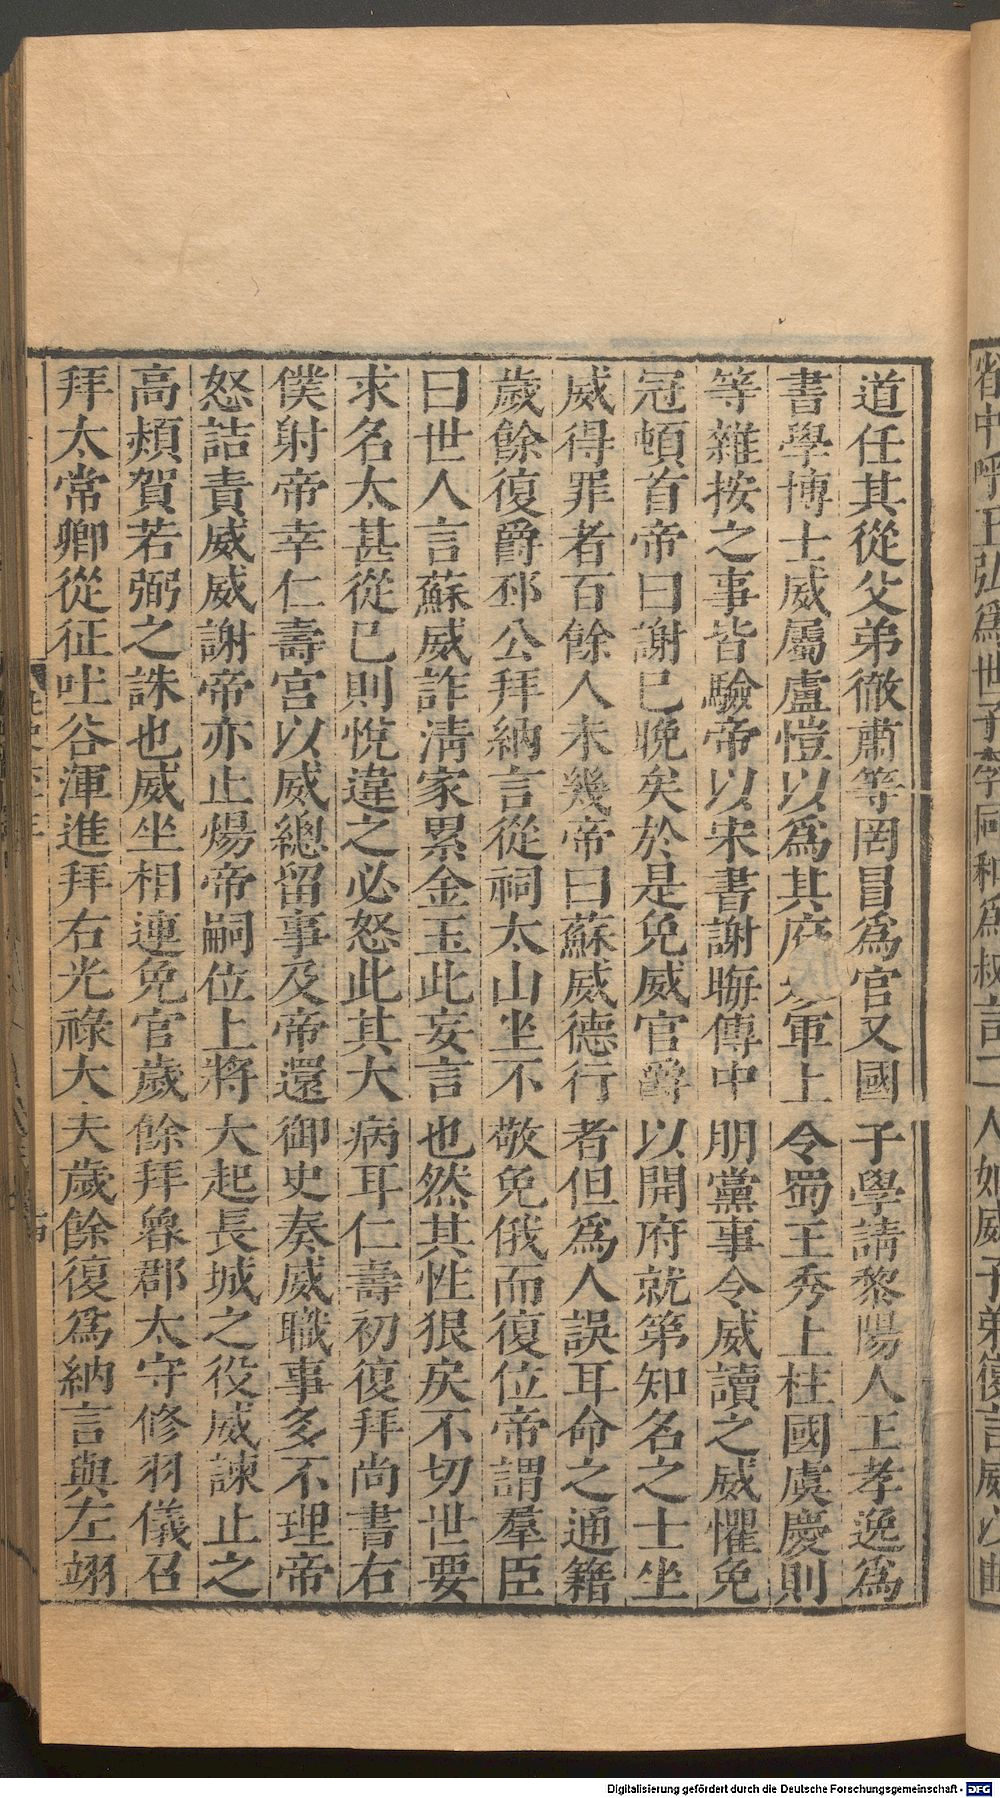 道任其從父弟徹肅等罔冒為官又國子學請黎陽人王孝逸為
書學博士威屬盧愷以為其府參軍上令蜀王秀上柱國虞慶則
等雜按之事皆驗帝以宋書謝晦傳中朋黨事令威讀之威懼免
冠頓首帝曰謝已晚矣於是免威官爵以開府就第知名之士坐
威得罪者百餘人未幾帝曰蘇威德行者但為人誤耳命之通籍
歲餘復爵邳公拜納言從祠太山坐不敬免俄而復位帝謂羣臣
曰世人言蘇威詐清家累金玉此妄言也然其性狠戾不切世要
求名太甚從己則悅違之必怒此其大病耳仁壽初復拜尚書右
僕射帝幸仁壽宮以威總留事及帝還御史奏威職事多不理帝
怒詰責威威謝帝亦止煬帝嗣位上將大起長城之役威諫止之
高熲賀若弼之誅也威坐相連免官歲餘拜魯郡太守修羽儀召
拜太常卿從征吐谷渾進拜右光祿大夫歲餘復為納言與左翊
Digitalisierung gefördert durch die Deutsche Forschungsgemeinschaft - DFG